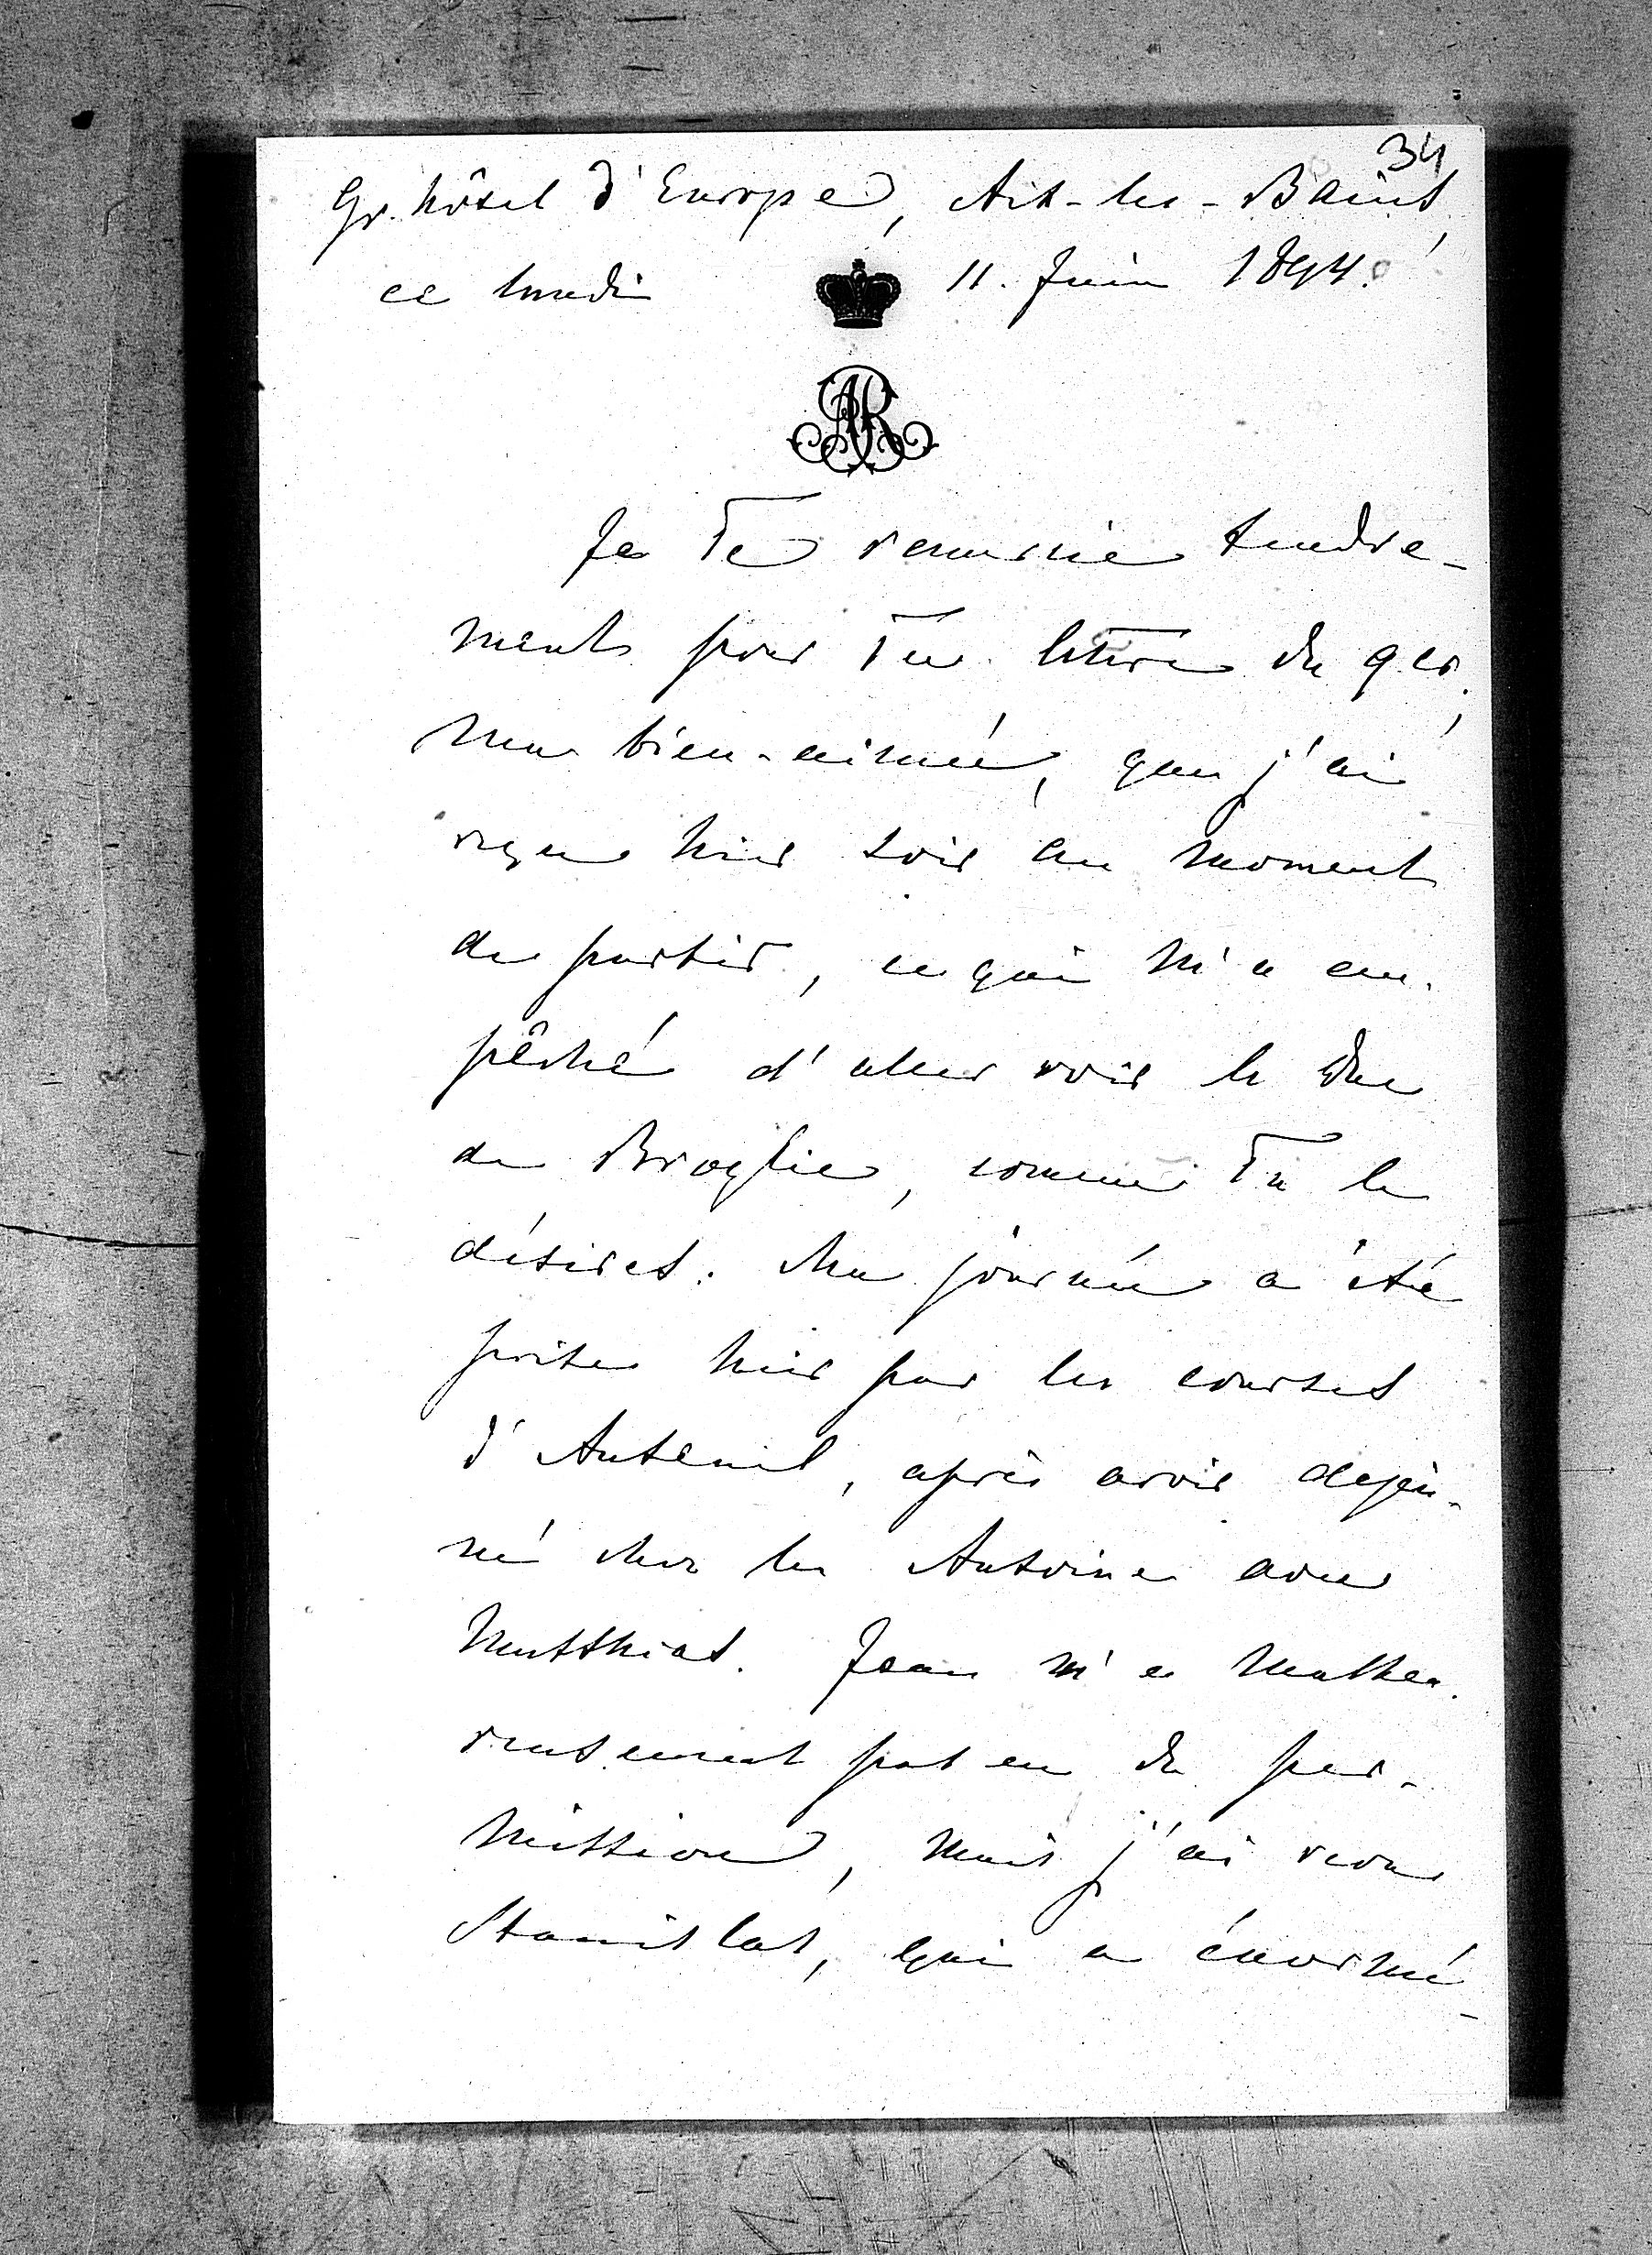 34
Gr. hôtel d'Europe, Aix-les-Bains,
ce lundi 11. Juin 1894.
AR
Je Te remercie tendre-
ment pour Ta lettre du 9 cr.,
ma bien-aimée, que j'ai
reçue hier soir au moment
de partir, ce qui m'a em-
pêché d'aller voir le Duc
de Broglie, comme Tu le
désires. Ma journée a été
prise hier par les courses
d'Auteuil, après avoir dejeu-
né chez les Antoine avec
Matthias. Jean n'a malheu-
reusement pas eu de per-
mission, mais j'ai revu
Stanislas, qui a énormé-